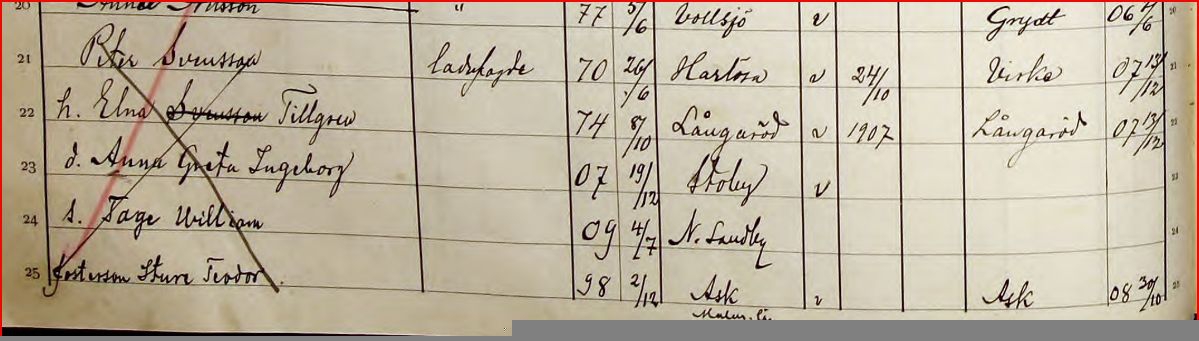 20 Nilsson " 77 5/6 Vollsjö v 06 4/6
21 Peter Svensson ladufogde 70 26/6 Harlösa v 24/10 Virke 07 13/12 21
22 h. Elna Svensson Tillgren 74 8/10 Långaröd v 1907 Långaröd 07 13/12 22
23 d. Anna Greta Ingeborg 07 19/12 Stoby v 23
24 s. Tage William 09 4/7 N. Sandby 24
25 fosterson Sture Teodor. 98 2/12 Ask v Ask 08 30/10 25